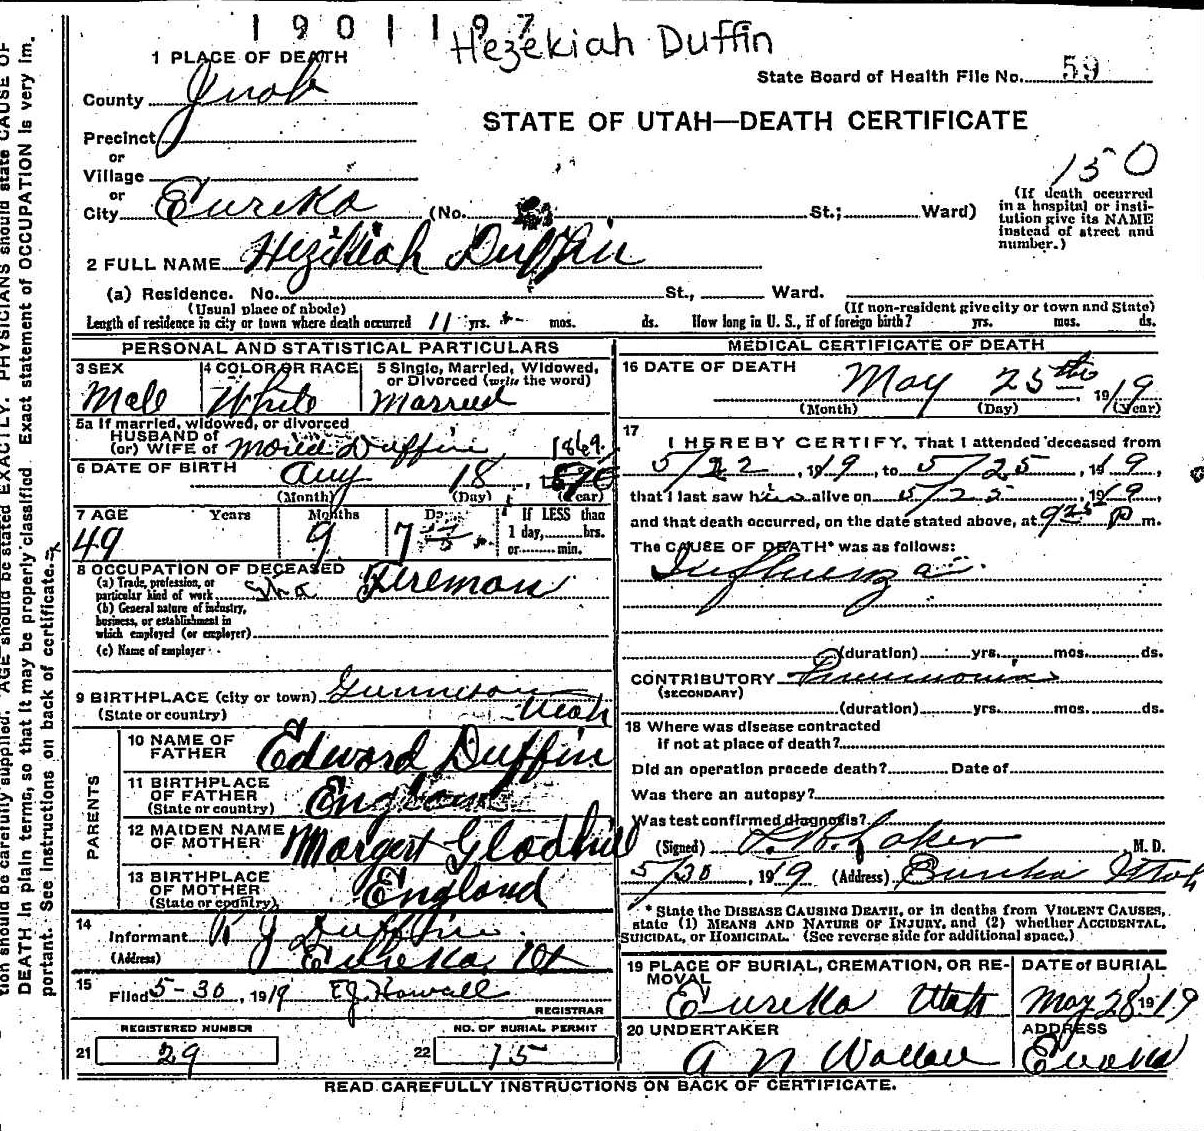 1901197
Hezekiah Duffin
1 PLACE OF DEATH
State Board of Health File No. 59
County Juab
STATE OF UTAH—DEATH CERTIFICATE
Precinct
or
Village
or
150
City Eureka (No. St.; Ward)
(If death occurred in a hospital or institution give its NAME instead of street and number.)
2 FULL NAME Hezikiah Duffin
(a) Residence. No. St., Ward.
(Usual place of abode) (If non-resident give city or town and State)
Length of residence in city or town where death occurred 11 yrs. mos. ds. How long in U. S., if of foreign birth? yrs. mos. ds.
PERSONAL AND STATISTICAL PARTICULARS
3 SEX Male
4 COLOR OR RACE White
5 Single, Married, Widowed, or Divorced (write the word) Married
5a If married, widowed, or divorced
HUSBAND of
(or) WIFE of Duffin
6 DATE OF BIRTH Aug 18, 1869
(Month) (Day) (Year)
7 AGE Years Months Days If LESS than
1 day, hrs.
or min.
49 9 7
8 OCCUPATION OF DECEASED
(a) Trade, profession, or particular kind of work Fireman
(b) General nature of industry, business, or establishment in which employed (or employer)
(c) Name of employer
9 BIRTHPLACE (city or town) Gunnison
(State or country) Utah
PARENTS
10 NAME OF FATHER Edward Duffin
11 BIRTHPLACE OF FATHER (State or country) England
12 MAIDEN NAME OF MOTHER Margert Gladhill
13 BIRTHPLACE OF MOTHER (State or country) England
14
Informant J Duffin
(Address) Eureka, Ut
15
Filed 5-30, 1919 EJ. Howell
REGISTRAR
REGISTERED NUMBER
21 29
NO. OF BURIAL PERMIT
22 15
MEDICAL CERTIFICATE OF DEATH
16 DATE OF DEATH May 25th 1919
(Month) (Day) (Year)
17
I HEREBY CERTIFY, That I attended deceased from
5/22, 1919, to 5/25, 1919,
that I last saw him alive on 5/25, 1919,
and that death occurred, on the date stated above, at 925 P m.
The CAUSE OF DEATH* was as follows:
Influenza
(duration) yrs. mos. ds.
CONTRIBUTORY Pneumonia
(SECONDARY)
(duration) yrs. mos. ds.
18 Where was disease contracted
if not at place of death?
Did an operation precede death? Date of
Was there an autopsy?
Was test confirmed diagnosis?
(Signed) M. D.
5/30, 1919 (Address) Eureka Utah
* State the DISEASE CAUSING DEATH, or in deaths from VIOLENT CAUSES,
state (1) MEANS AND NATURE OF INJURY, and (2) whether ACCIDENTAL,
SUICIDAL, OR HOMICIDAL. (See reverse side for additional space.)
19 PLACE OF BURIAL, CREMATION, OR REMOVAL Eureka Utah
DATE of BURIAL May 28 1919
20 UNDERTAKER A N Wallace
ADDRESS Eureka
READ CAREFULLY INSTRUCTIONS ON BACK OF CERTIFICATE.
tion should be carefully supplied. AGE should be stated EXACTLY. PHYSICIANS should state CAUSE OF
DEATH in plain terms, so that it may be properly classified. Exact statement of OCCUPATION is very im-
portant. See instructions on back of certificate.